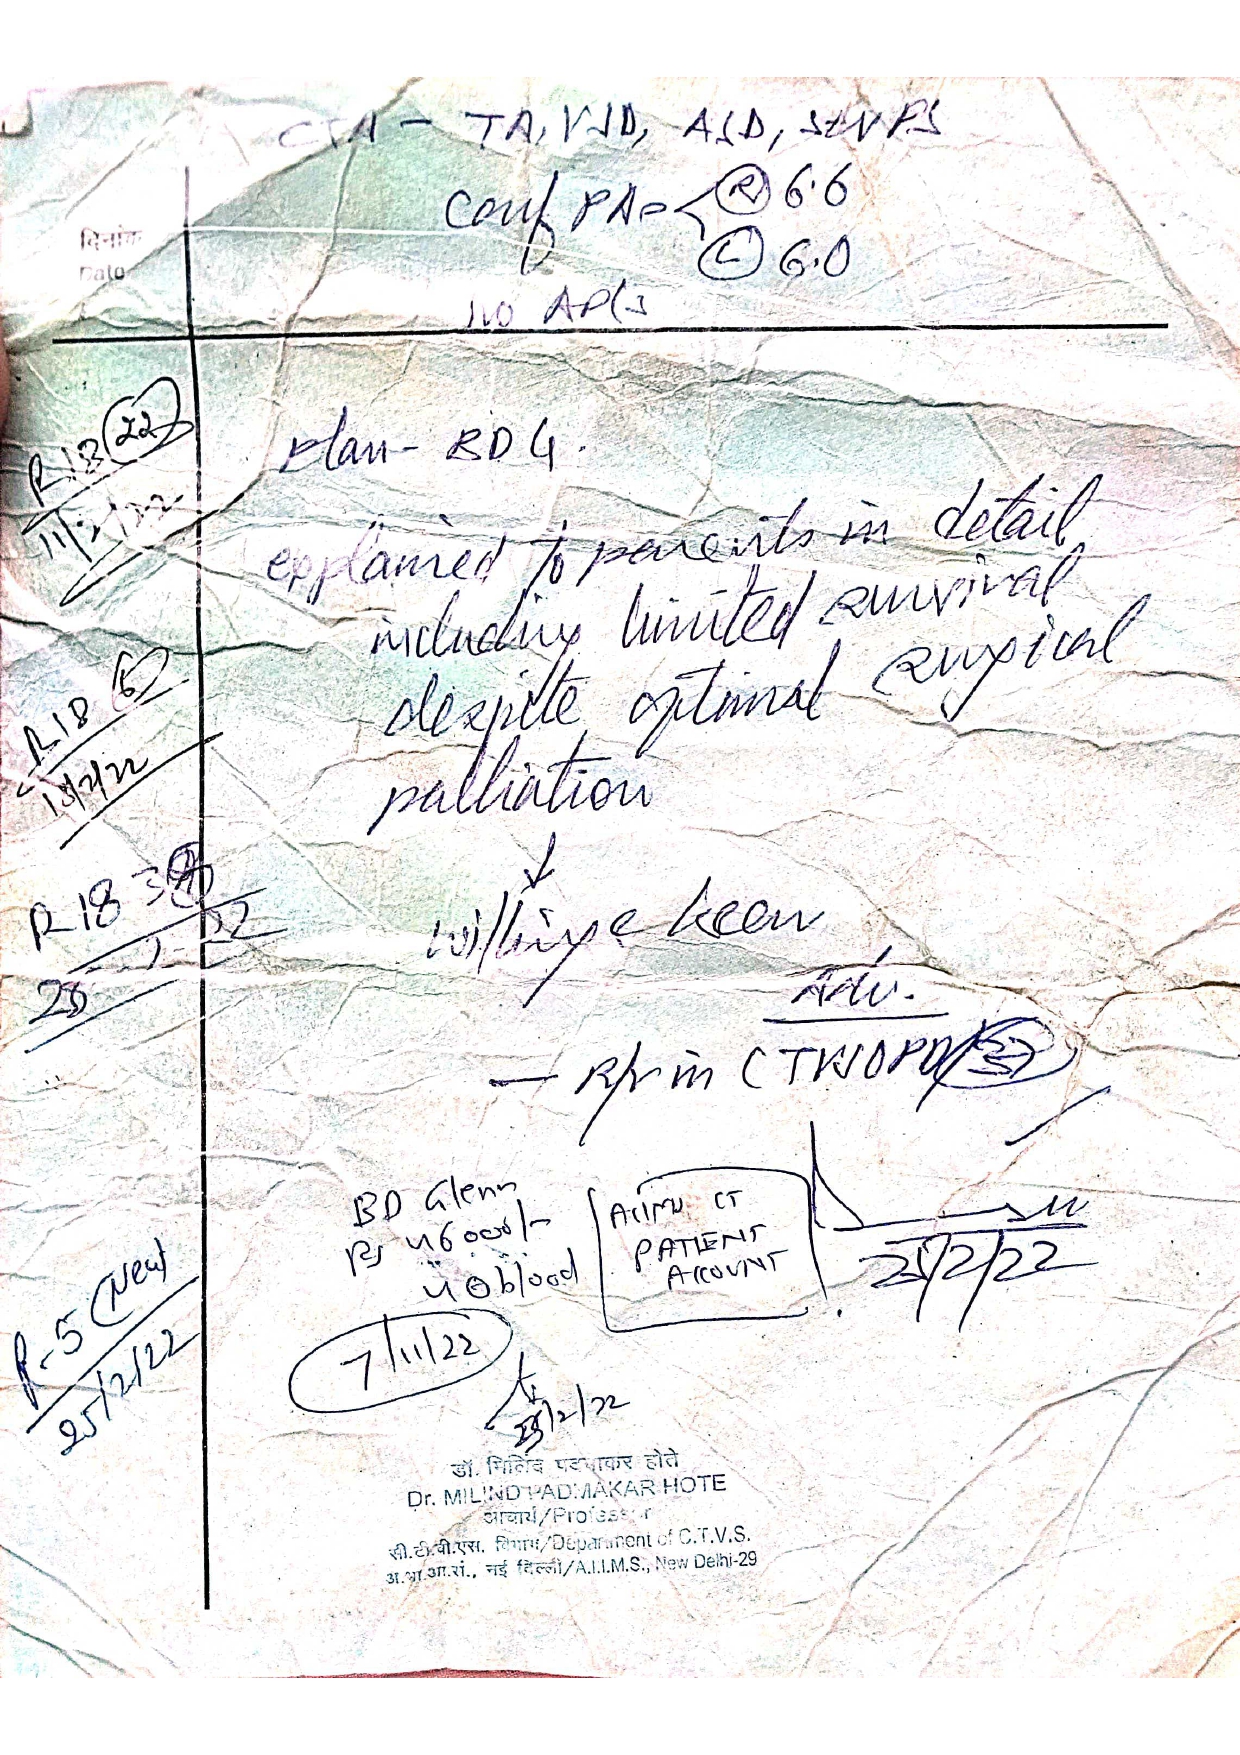 CTA - TA, VSD, ASD, SEV PS
Conf PAs
R 6.6
L 6.0
NO APCs
दिनांक
Date
R18 22
R18 6
R18
25
R-5 New
25/2/22
Plan - BDG.
explained to parents in detail
including limited survival
despite optimal surgical
palliation
↓
willing & keen
Adv.
- R/v in CTVS OPD
BD Glenn
Rs 46000/-
4 blood
AIIMS CT
PATIENT
ACCOUNT
25/2/22
7/11/22
25/2/22
डॉ. मिलिंद पदमाकर होते
Dr. MILIND PADMAKAR HOTE
आचार्य/Professor
सी.टी.वी.एस. विभाग/Department of C.T.V.S.
अ.भा.आ.सं., नई दिल्ली/A.I.I.M.S., New Delhi-29